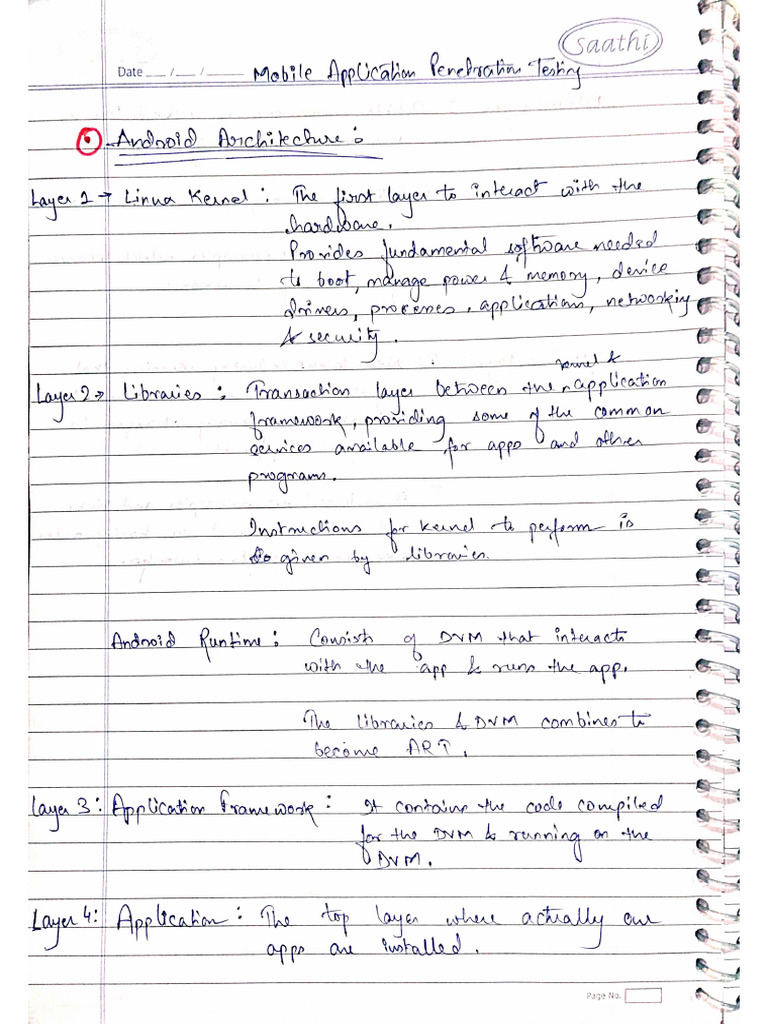 saathi
Date __/__/____ Mobile Application Penetration Testing
Android Architecture :
Layer 1 → Linux Kernel : The first layer to interact with the
hardware.
Provides fundamental software needed
to boot, manage power & memory, device
drivers, processes, application, networking
& security.
kernel &
Layer 2 → Libraries : Transaction layer between the ^ application
framework, providing some of the common
services available for apps and other
programs.
Instructions for kernel to perform is
given by libraries.
Android Runtime : Consists of DVM that interacts
with the app & runs the app.
The libraries & DVM combines to
become ART.
Layer 3 : Application Framework : It contains the code compiled
for the DVM & running on the
DVM.
Layer 4 : Application : The top layer where actually our
apps are installed.
Page No.